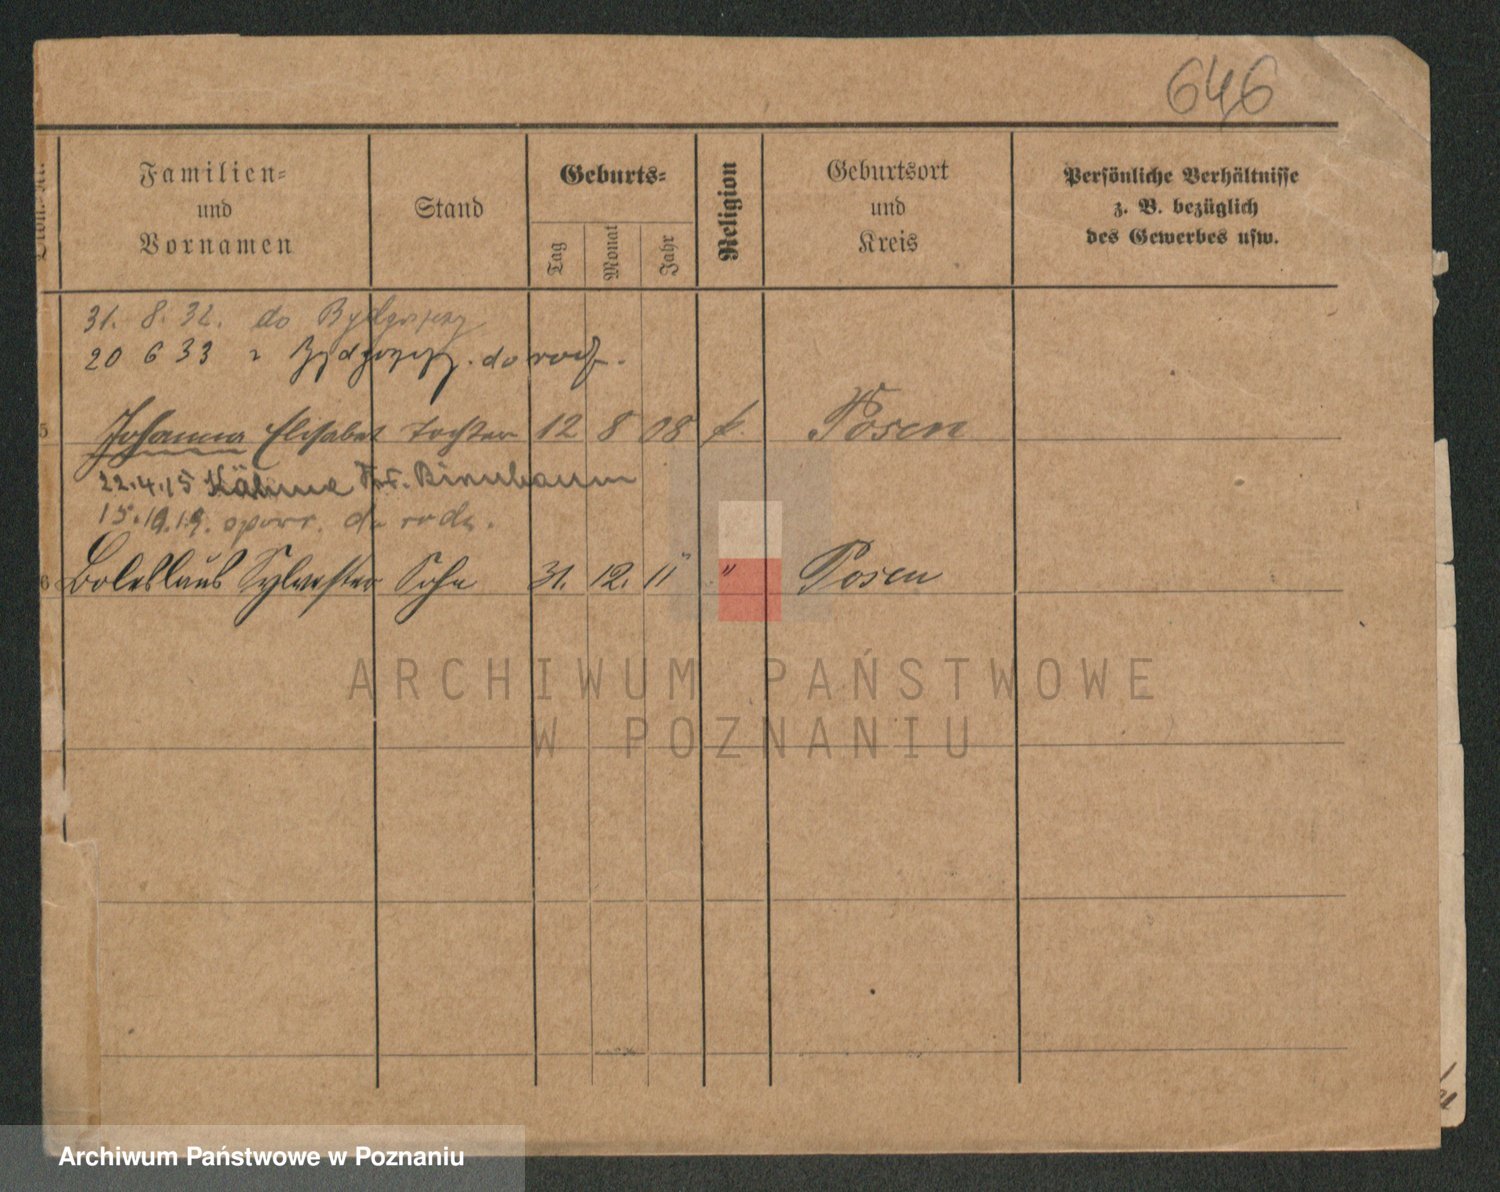 646
Familien-
und
Vornamen
Stand
Geburts-
Tag
Monat
Jahr
Religion
Geburtsort
und
Kreis
Persönliche Verhältnisse
z. B. bezüglich
des Gewerbes usw.
31. 8. 32. do Bydgoszczy
20 6 33 z Bydgoszczy. do rodz.
5 Johanna Elisabet Tochter 12 8 08 k. Posen
22.4.15 Kähme Kr. Birnbaum
15.10.19. do rodz.
6 Boleslaus Sylvester Sohn 31. 12. 11 " " Posen
ARCHIWUM PAŃSTWOWE
W POZNANIU
Archiwum Państwowe w Poznaniu